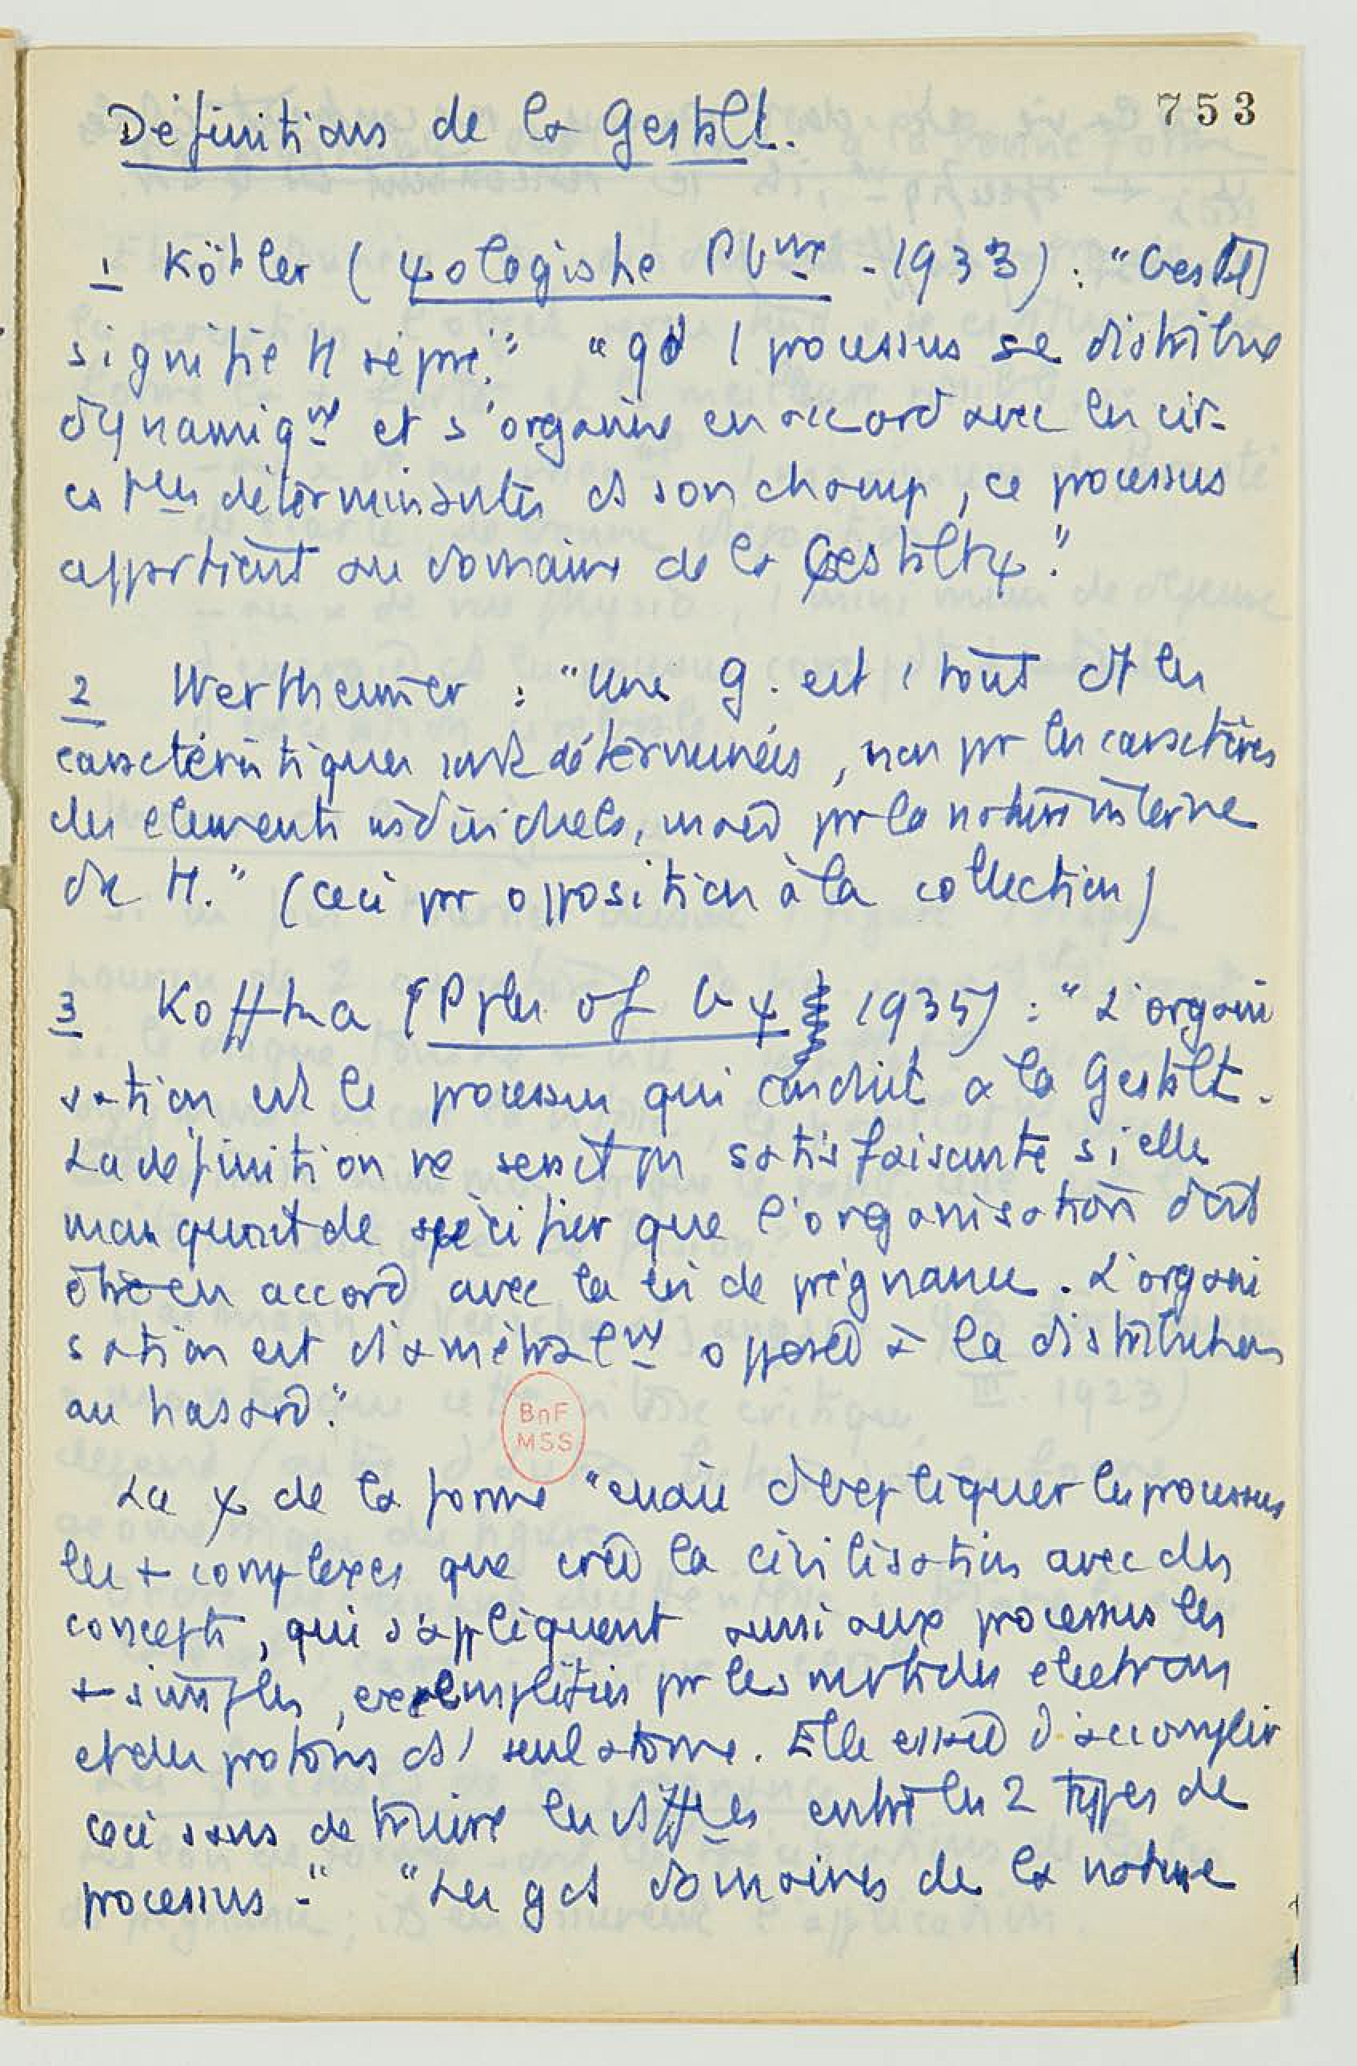 753
Définitions de la Gestalt.
1 Köhler (ψologishe Pbme - 1933) : "Gestalt
signifie tt sépré." "qd 1 processus se distribue
dynamiqt et s'organise en accord avec les cir-
ces déterminantes ds son champ, ce processus
appartient au domaine de la Gestaltψ."
2 Wertheimer : "Une G. est 1 tout dt les
caractéristiques sont déterminées, non par les caractères
des elements individuels, mais par la nature interne
du tt." (ceci par opposition à la collection)
3 Koffka (Ples of Gψ 1935) : "L'organi
sation est le processus qui conduit à la Gestalt.
La définition ne serait pas satisfaisante si elle
manquait de spécifier que l'organisation doit
être en accord avec la loi de prégnance. L'organi
sation est diamétralt opposée à la distribution
au hasard."
BnF
MSS
La ψ de la forme "essaie d'expliquer les processus
les + complexes que crée la civilisation avec des
concepts, qui s'appliquent aussi aux processus les
+ simples, exemplifiés par les mvts des electrons
et des protons ds 1 seul atome. Elle essaie d'accomplir
ceci sans detruire les diffces entre les 2 types de
processus." "Les gds domaines de la nature